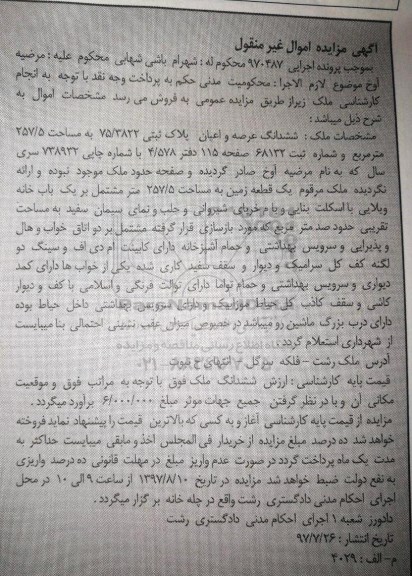 آگهی مزایده اموال غیر منقول
بموجب پرونده اجرایی ۹۷۰۴۸۷ محکوم له : شهرام باشی شهابی محکوم علیه : مرضیه
اوخ موضوع لازم الاجرا : محکومیت مدنی حکم به پرداخت وجه نقد با توجه به انجام
کارشناسی ملک زیراز طریق مزایده عمومی به فروش می رسد مشخصات اموال به
شرح ذیل میباشد :
مشخصات ملک : ششدانگ عرصه و اعیان پلاک ثبتی ۷۵/۳۸۲۲ به مساحت ۲۵۷/۵
مترمربع و شماره ثبت ۶۸۱۳۲ صفحه ۱۱۵ دفتر ۴/۵۷۸ با شماره چاپی ۷۳۸۹۳۲ سری
سال که به نام مرضیه اوخ صادر گردیده و صفحه حدود ملک موجود نبوده و ارائه
نگردیده ملک مرقوم یک قطعه زمین به مساحت ۲۵۷/۵ متر مشتمل بر یک باب خانه
ویلایی با اسکلت بنایی و بام خرپای شیروانی و حلب و نمای سیمان سفید به مساحت
تقریبی حدود صد متر مربع که مورد بازسازی قرار گرفته مشتمل بر دو اتاق خواب و هال
و پذیرایی و سرویس بهداشتی و حمام آشپزخانه دارای کابینت ام دی اف و سینگ دو
لگنه کف کل سرامیک و دیوار و سقف سفید کاری شده یکی از خواب ها دارای کمد
دیواری و سرویس بهداشتی و حمام تواما دارای توالت فرنگی و اسلامی با کف و دیوار
کاشی و سقف کاذب کل حیاط موزاییک و دارای سرویس بهداشتی داخل حیاط بوده
دارای درب بزرگ ماشین رو میباشد در خصوص میزان عقب نشینی احتمالی بنا میبایست
از شهرداری استعلام گردد .
آدرس ملک رشت – فلکه سرگل – انتهای خ
قیمت پایه کارشناسی : ارزش ششدانگ ملک فوق با توجه به مراتب فوق و موقعیت
مکانی آن و با در نظر گرفتن جمیع جهات موثر مبلغ ۶/۰۰۰/۰۰۰ برآورد میگردد .
مزایده از قیمت پایه کارشناسی آغاز و به کسی که بالاترین قیمت را پیشنهاد نماید فروخته
خواهد شد ده درصد مبلغ مزایده از خریدار فی المجلس اخذ و مابقی میبایست حداکثر به
مدت یک ماه پرداخت گردد در صورت عدم واریز مبلغ در مهلت قانونی ده درصد واریزی
به نفع دولت ضبط خواهد شد مزایده در تاریخ ۱۳۹۷/۸/۱۰ از ساعت ۹ الی ۱۰ در محل
اجرای احکام مدنی دادگستری رشت واقع در چله خانه بر گزار میگردد .
دادورز شعبه ۱ اجرای احکام مدنی دادگستری رشت
تاریخ انتشار : ۹۷/۷/۲۶
م – الف : ۴۰۲۹